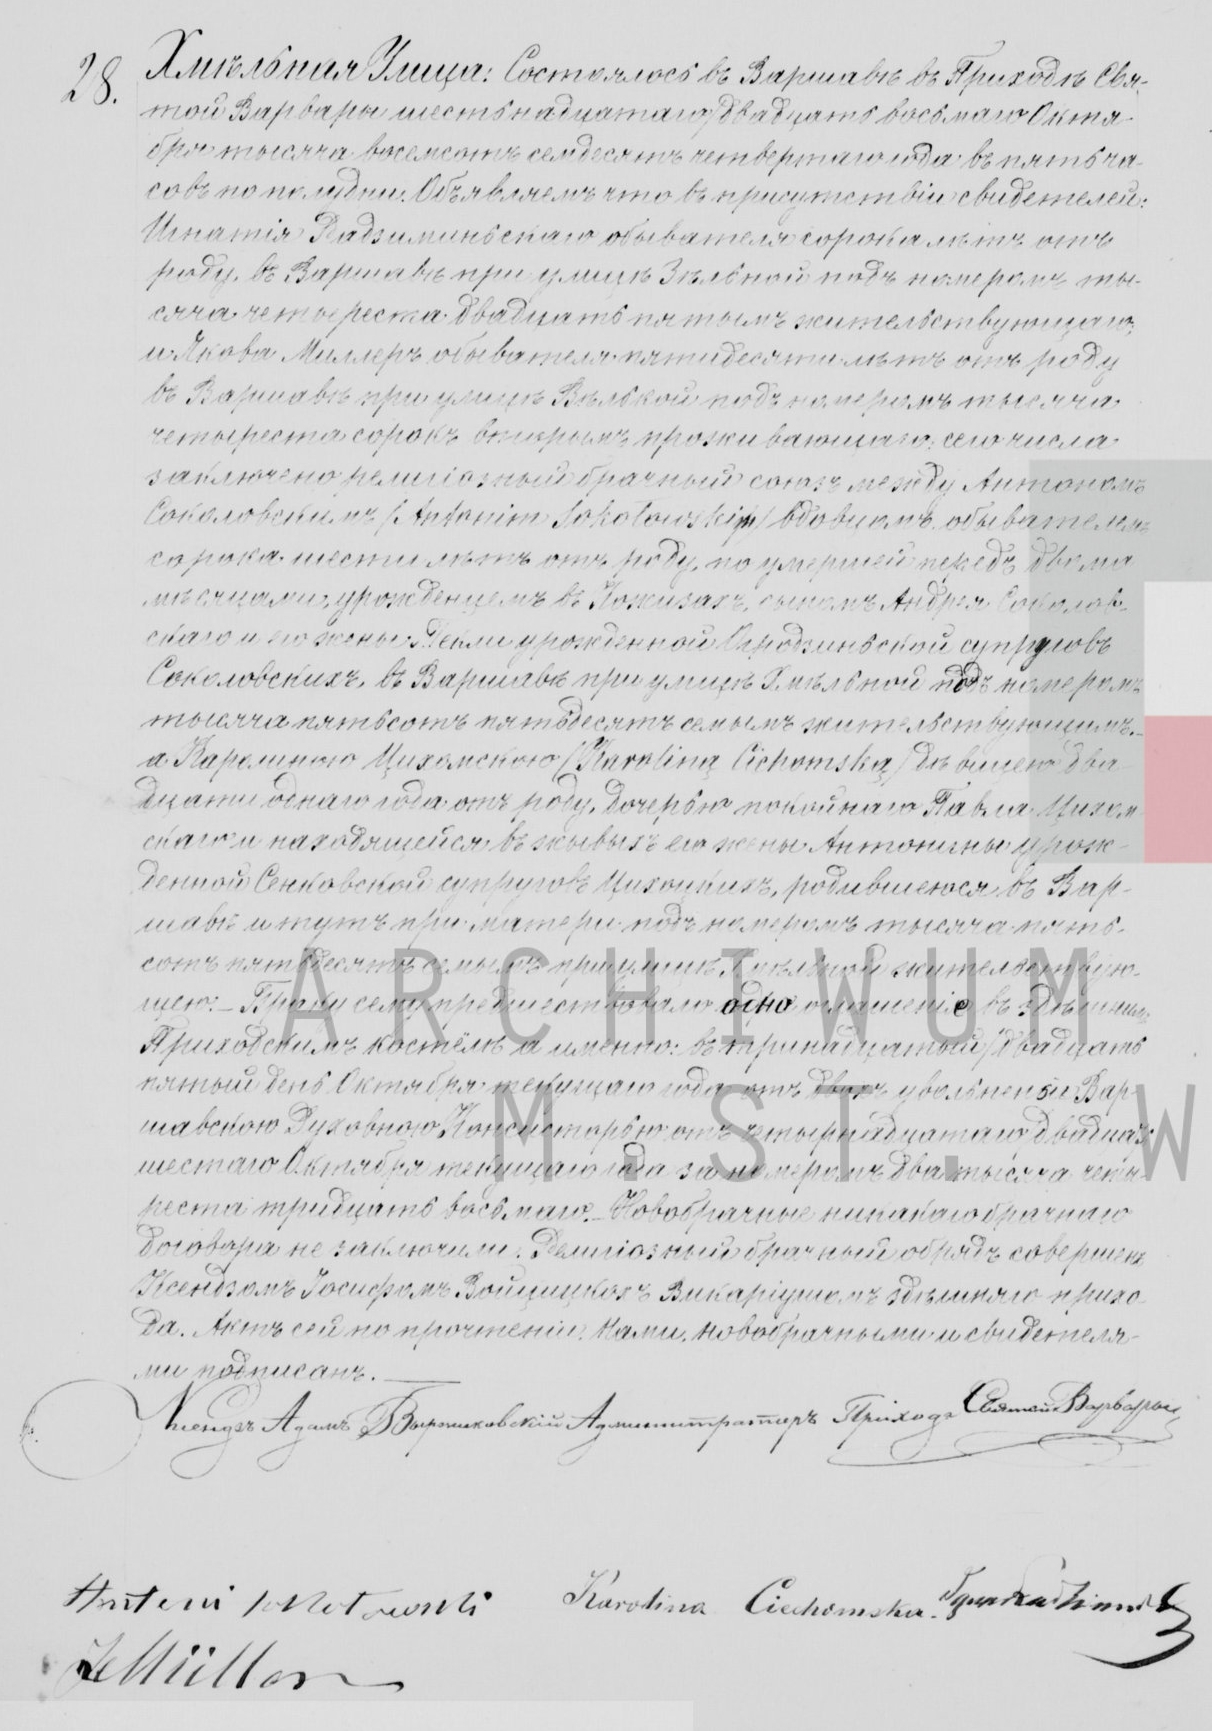 28. Хмѣльная Улица: Состоялось въ Варшавѣ въ Приходѣ Свя-
той Варвары шестьнадцатаго/двадцать восьмаго Октя-
бря тысяча восемсотъ семдесятъ четвертаго года въ пять ча-
совъ по полудни. Объявляемъ что въ присутствіи свидетелей:
Игнатія Радзиминьскаго обывателя сорока лѣтъ отъ
роду, въ Варшавѣ при улицѣ Зѣльной подъ номеромъ ты-
сяча четыреста двадцать пятымъ жительствующаго,
и Якова Миллеръ обывателя пятидесяти лѣтъ отъ роду
въ Варшавѣ при улицѣ Вѣлькой подъ номеромъ тысяча
четыреста сорокъ вторымъ проживающаго: сего числа
заключено религіозный брачный союзъ между Антономъ
Соколовскимъ /Antonim Sokołowskim/ вдовцомъ обывателемъ
сорока шести лѣтъ отъ роду, по умершей передъ двома
мѣсяцами, урожденцемъ въ сыномъ Андрея Соколов-
скаго и его жены Текли урожденной супруговъ
Соколовскихъ, въ Варшавѣ при улицѣ Хмѣльной подъ номеромъ
тысяча пятьсотъ пятьдесятъ семымъ жительствующимъ.—
а Каролиною Цихомскою /Karoliną Cichomską/ дѣвицею два
дцати однаго года отъ роду, дочерью покойнаго Павла Цихом
скаго и находящейся въ живыхъ его жены Антонины урож-
денной Сенковской супруговъ родившеюся въ Вар-
шавѣ и тутъ при матери подъ номеромъ тысяча пять-
сотъ пятьдесятъ семымъ при улицѣ Хмѣльной жительствую-
щею.— Браку сему предшествовало одно оглашеніе въ здѣшнемъ
Приходскимъ костёлѣ а именно: въ тринадцатый/двадцать
пятый день Октября текущаго года отъ двухъ увольненъ Вар-
шавскою Духовною Консисторью отъ четырнадцатаго/двадцать
шестаго Октября текущаго года за номеромъ два тысяча четы-
реста тридцать восьмаго.— Новобрачные никакаго брачнаго
договора не заключили. Религіозный брачный обрядъ совершенъ
Ксендзомъ Іосифомъ Викаріушомъ здѣшняго прихо-
да. Актъ сей по прочтеніи Нами, новобрачными и свидетеля-
ми подписанъ.—
Ксендзъ Адамъ Администраторъ Прихода Святой Варвары
Antoni Sokołowski Karolina Ciechomska
J Müller
ARCHIWUM
M. ST. W